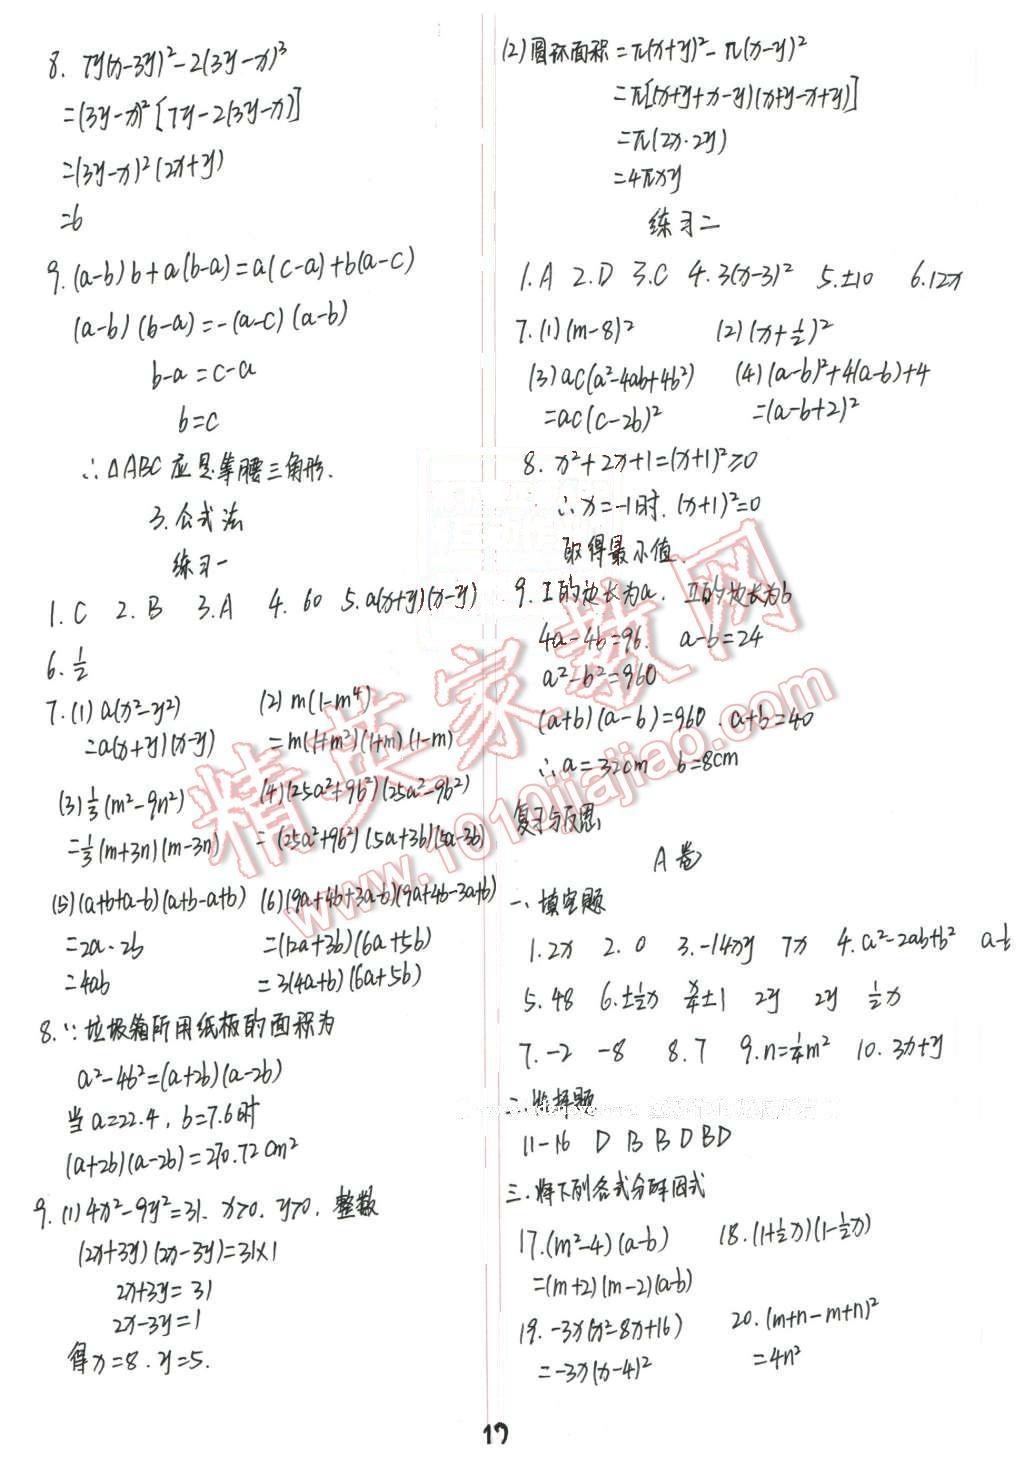 8. 7y(x-3y)²-2(3y-x)³
=(3y-x)²[7y-2(3y-x)]
=(3y-x)²(2x+y)
=6
9. (a-b)b+a(b-a)=a(c-a)+b(a-c)
(a-b)(b-a)=-(a-c)(a-b)
b-a=c-a
b=c
∴△ABC应是等腰三角形.
3.公式法
练习一
1.C 2.B 3.A 4.60 5.a(x+y)(x-y)
6.½
7.(1)a(x²-y²) (2)m(1-m⁴)
=a(x+y)(x-y) =m(1+m²)(1+m)(1-m)
(3)⅓(m²-9n²) (4)(25a²+9b²)(25a²-9b²)
=⅓(m+3n)(m-3n) =(25a²+9b²)(5a+3b)(5a-3b)
(5)(a+b+a-b)(a+b-a+b) (6)(9a+4b+3a-b)(9a+4b-3a+b)
=2a·2b =(12a+3b)(6a+5b)
=4ab =3(4a+b)(6a+5b)
8.∵垃圾箱所用纸板的面积为
a²-4b²=(a+2b)(a-2b)
当a=22.4,b=7.6时
(a+2b)(a-2b)=270.72cm²
9.(1)4x²-9y²=31. x>0. y>0. 整数
(2x+3y)(2x-3y)=31×1
2x+3y=31
2x-3y=1
得x=8.y=5.
(2)圆环面积=π(x+y)²-π(x-y)²
=π[(x+y+x-y)(x+y-x+y)]
=π(2x·2y)
=4πxy
练习二
1.A 2.D 3.C 4.3(x-3)² 5.±10 6.12x
7.(1)(m-8)² (2)(x+½)²
(3)ac(a²-4ab+4b²) (4)(a-b)²+4(a-b)+4
=ac(c-2b)² =(a-b+2)²
8. x²+2x+1=(x+1)²≥0
∴x=-1时.(x+1)²=0
取得最小值.
9.Ⅰ的边长为a. Ⅱ的边长为b
4a-4b=96. a-b=24
a²-b²=960
(a+b)(a-b)=960.a+b=40
∴a=32cm b=8cm
复习与反思
A卷
一、填空题
1.2x 2.0 3.-14xy 7x 4.a²-2ab+b² a-b
5.48 6.±½x x/4±1 2y 2y ½x
7.-2 -8 8.7 9.n=¼m² 10.3x+y
二.选择题
11-16 D B B D B D
三.将下列各式分解因式
17.(m²-4)(a-b) 18.(1+½x)(1-½x)
=(m+2)(m-2)(a-b)
19.-3x(x²-8x+16) 20.(m+n-m+n)²
=-3x(x-4)² =4n²
精英家教网
www.1010jiajiao.com
17